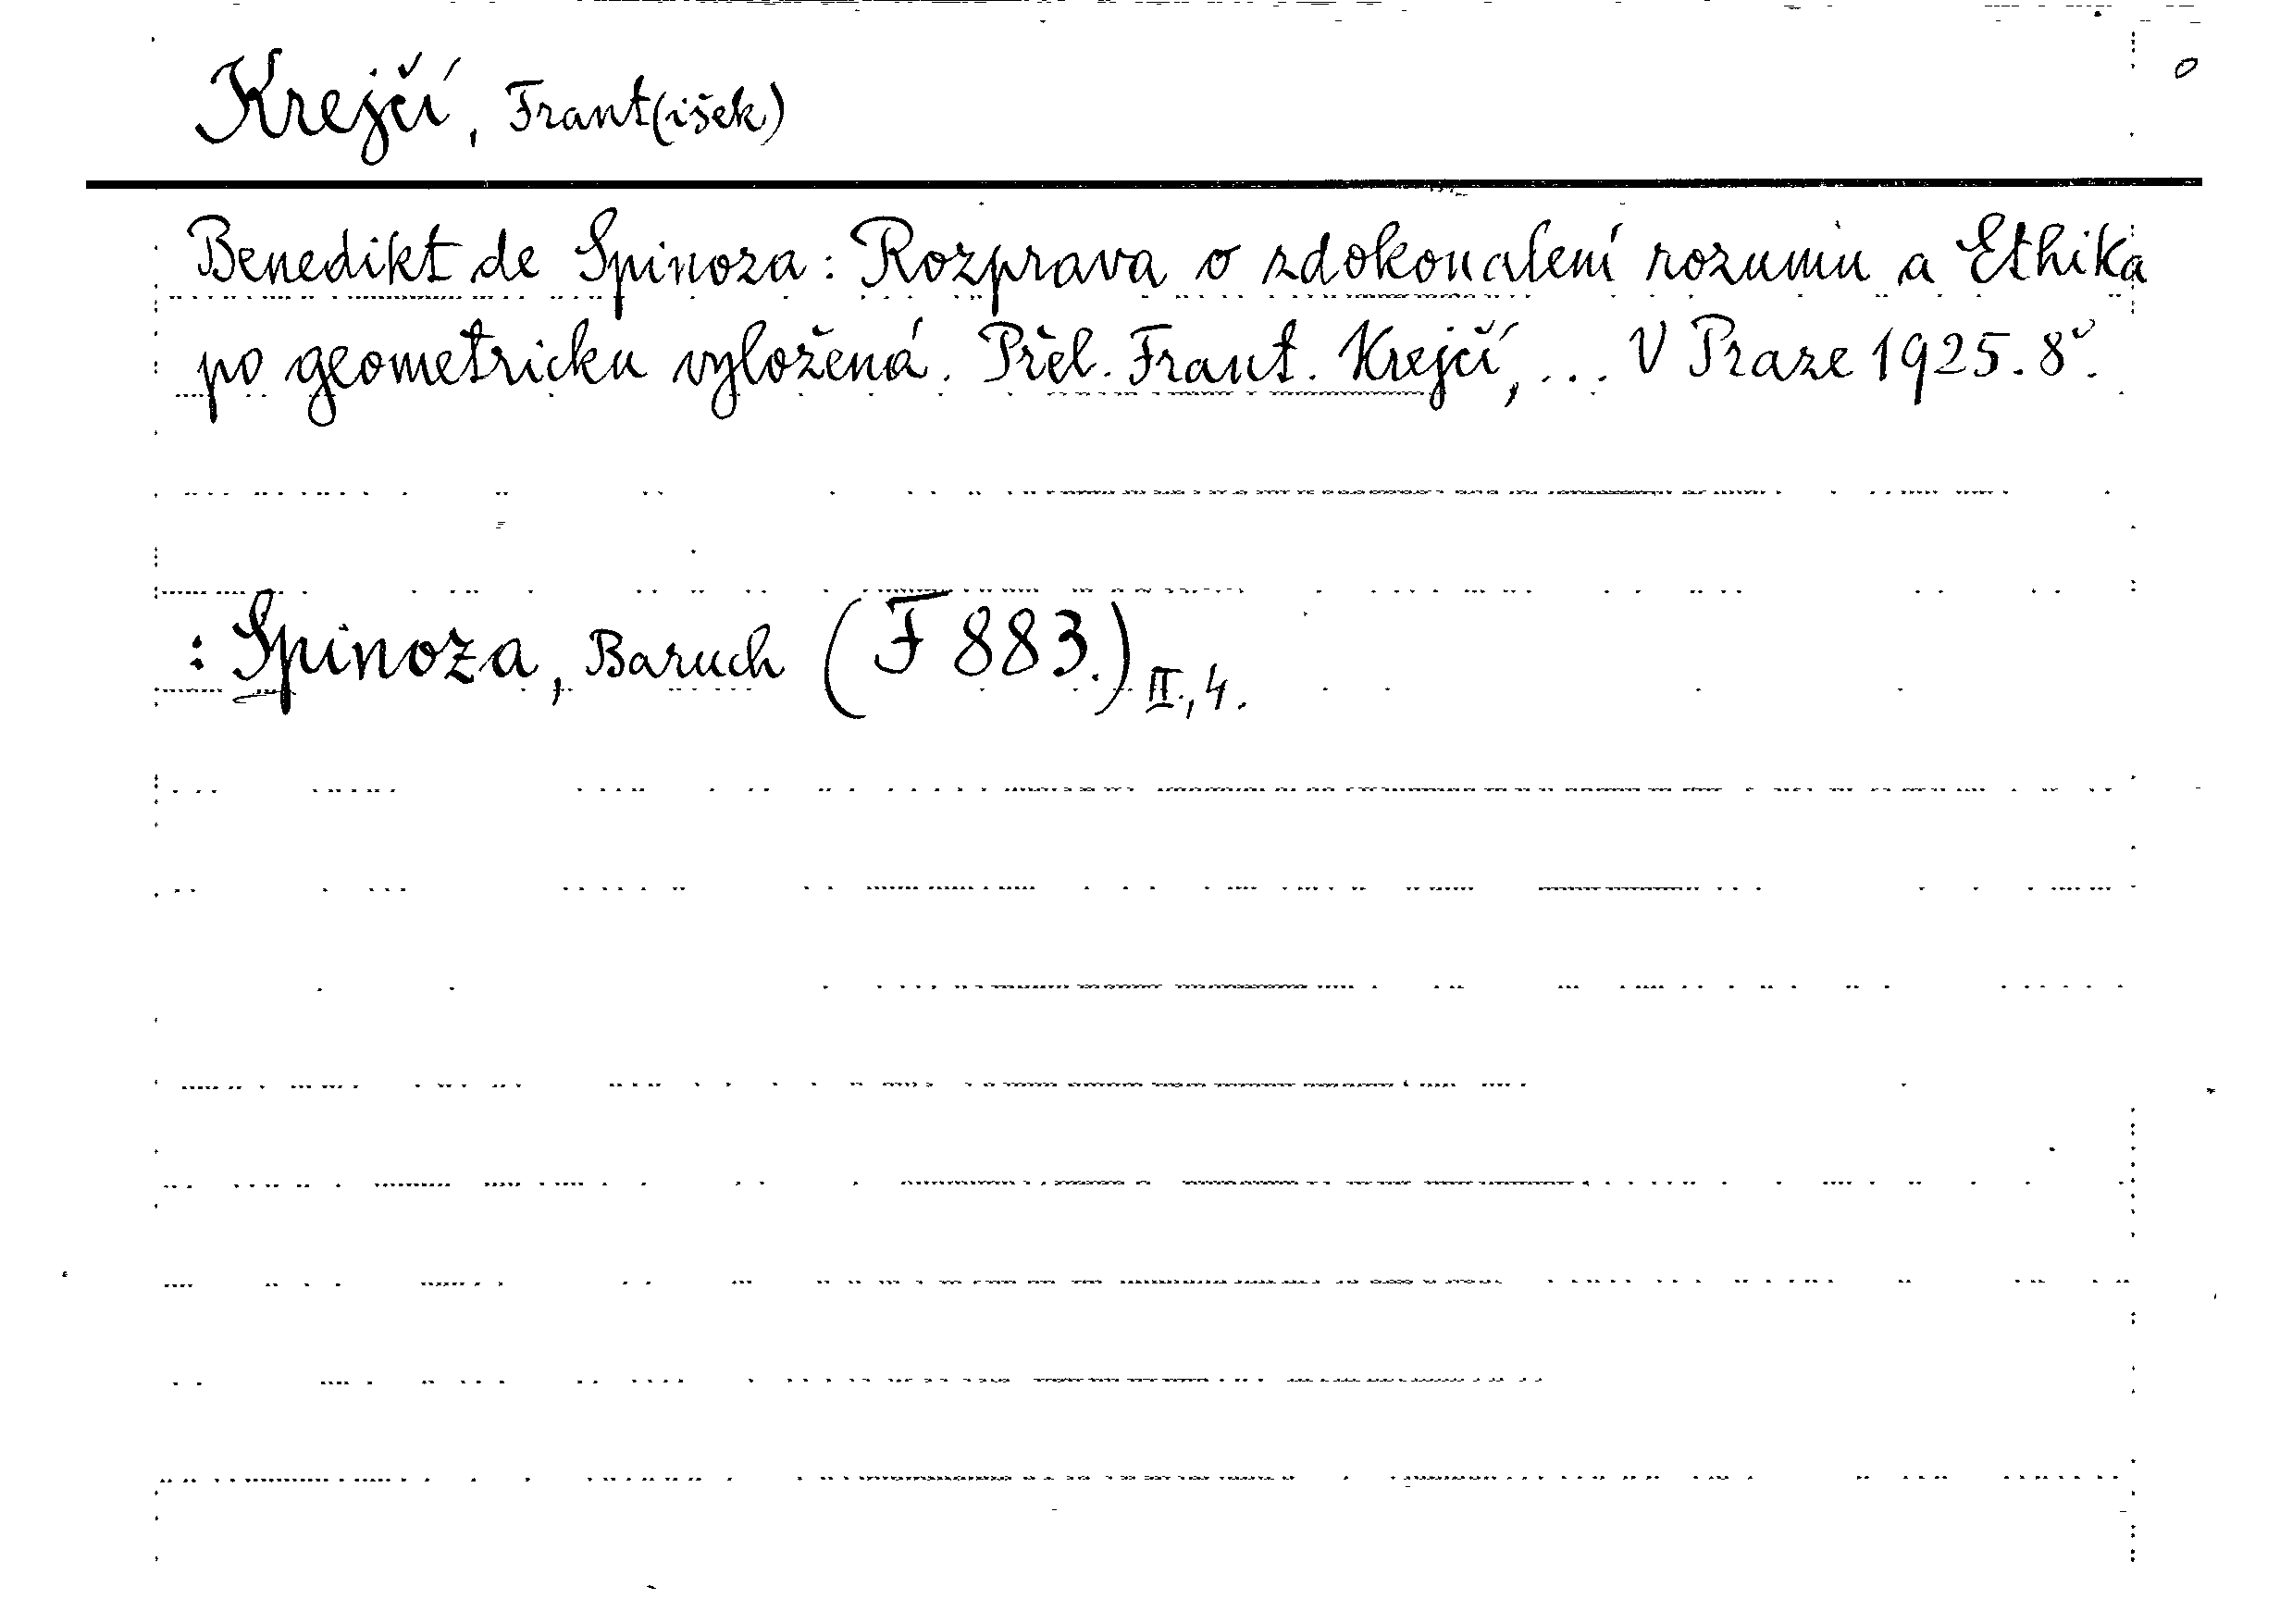 Krejčí, Frant(išek)
Benedikt de Spinoza: Rozprava o zdokonalení rozumu a Ethika
po geometricku vyložená. Přel. Frant. Krejčí, ... V Praze 1925. 8°.
: Spinoza, Baruch (F 883.) II., 4.